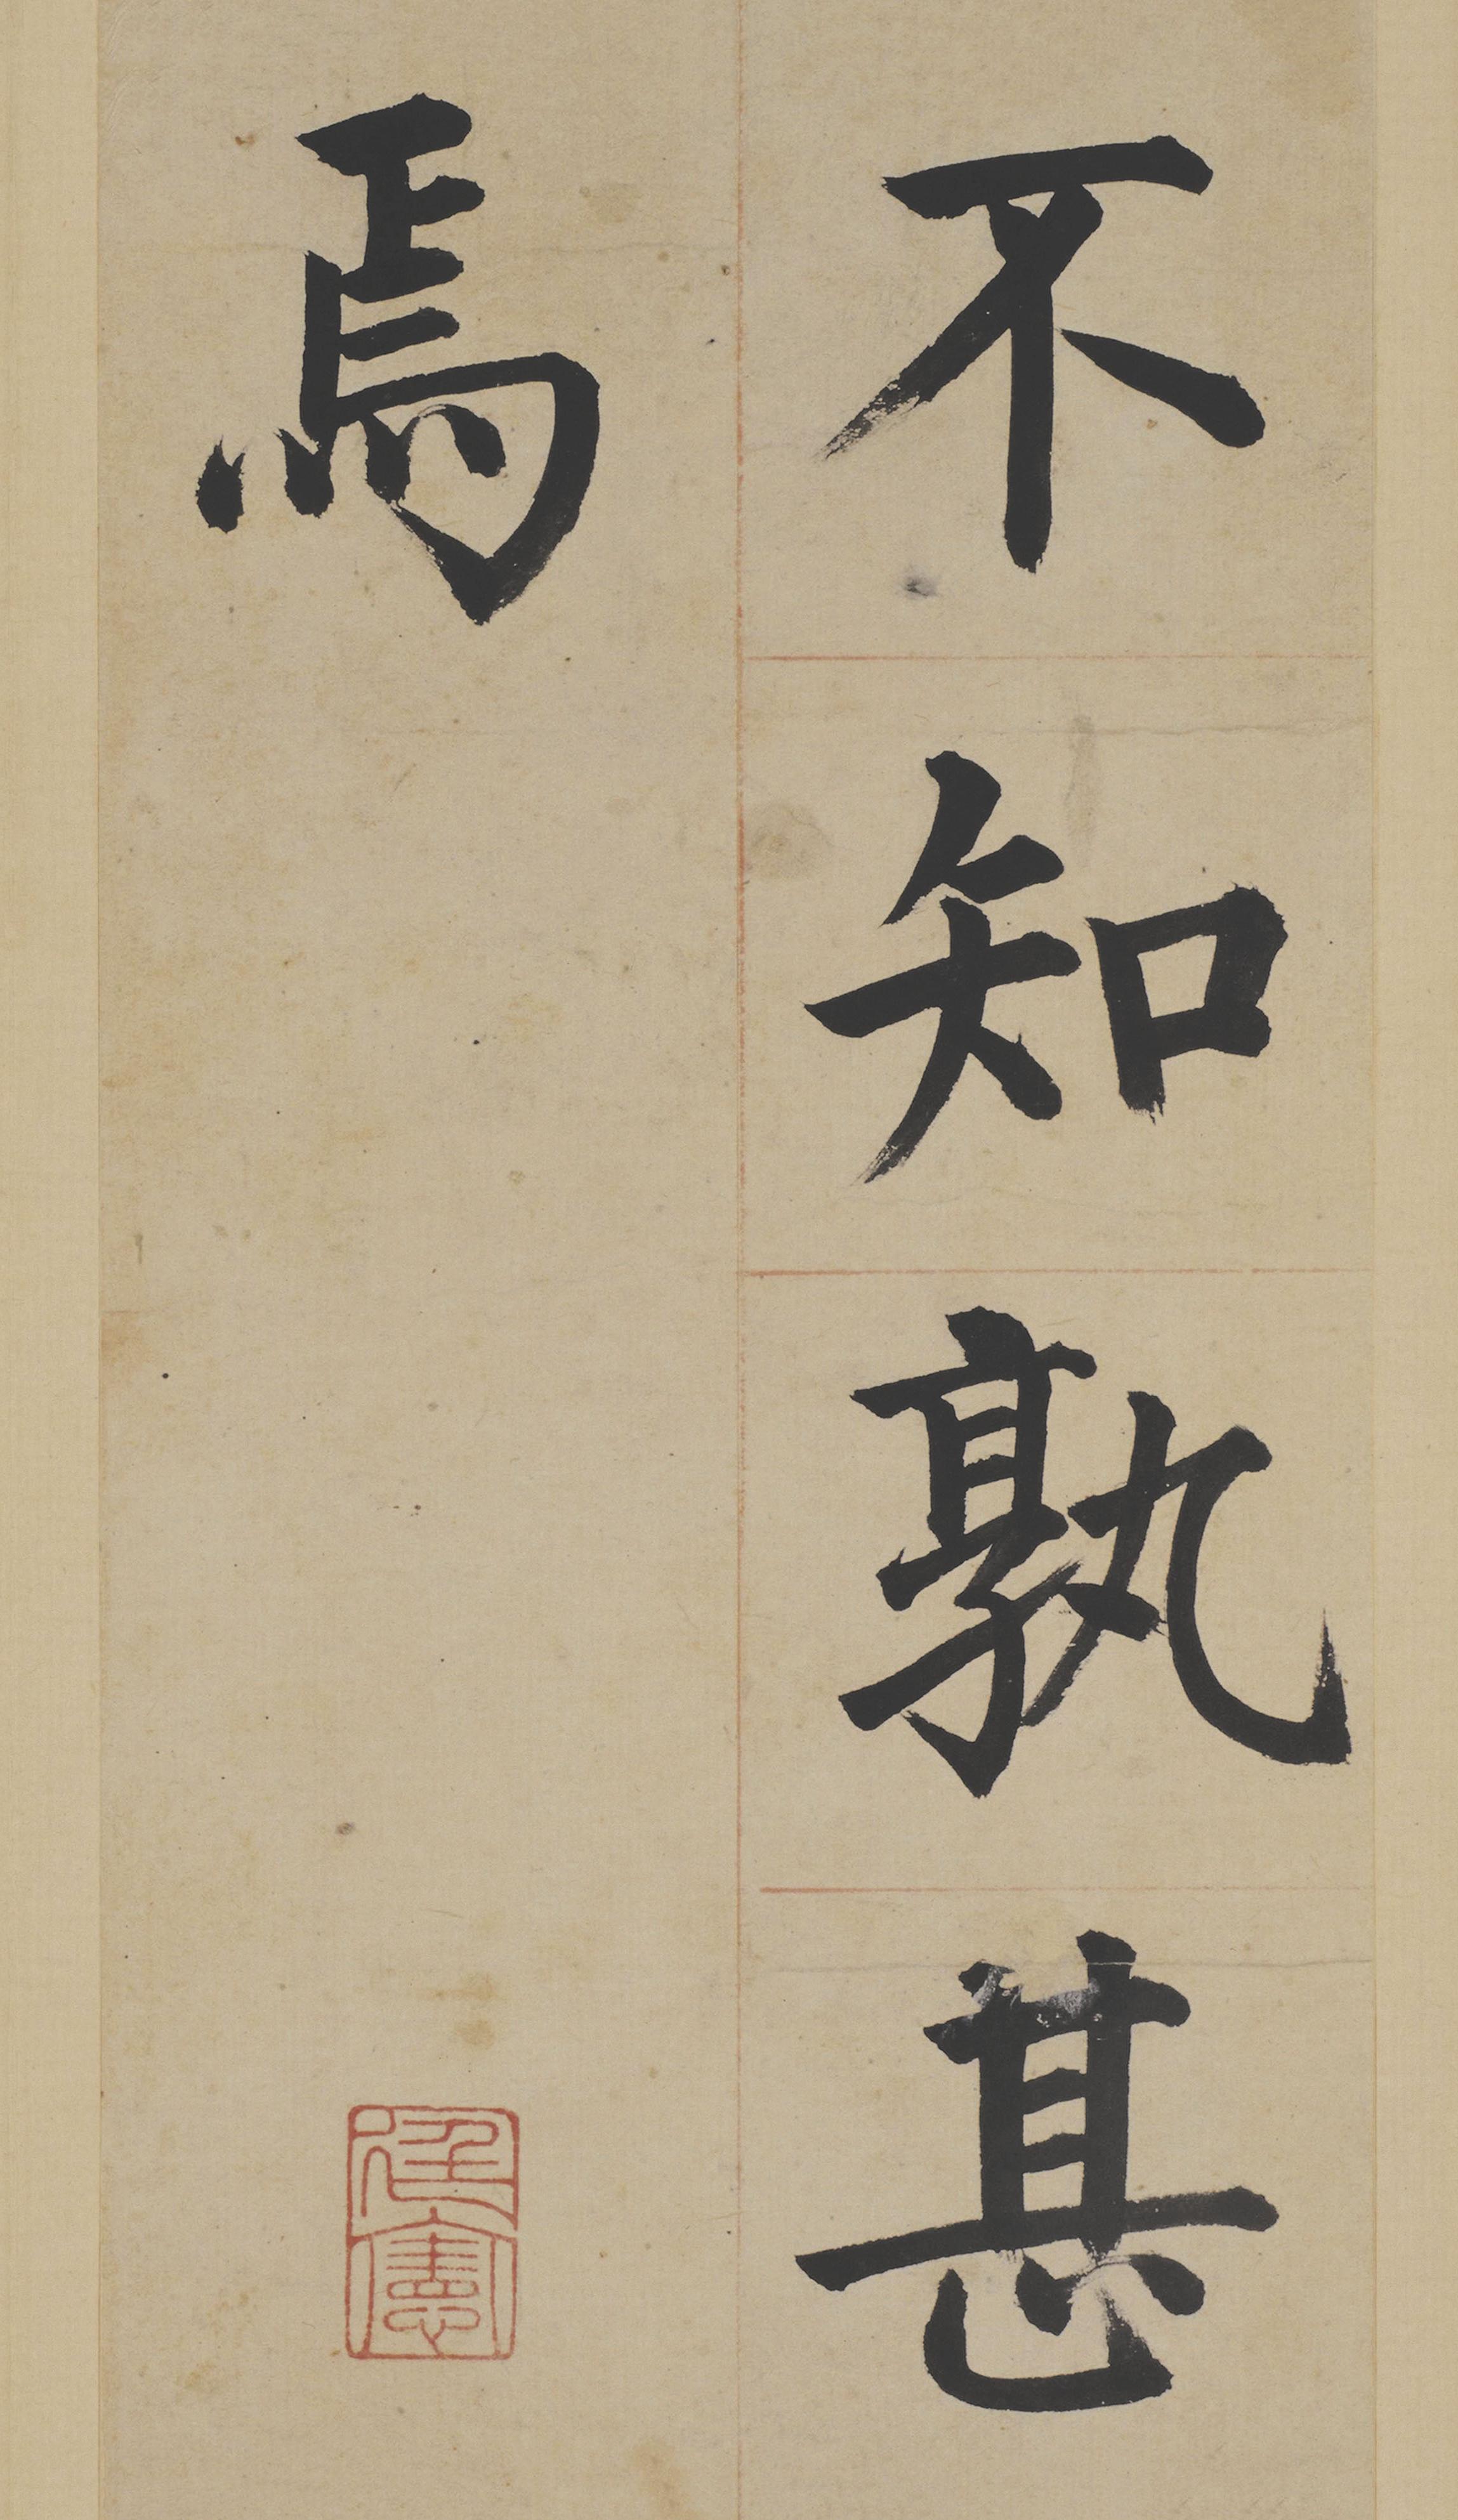 不知孰甚
焉